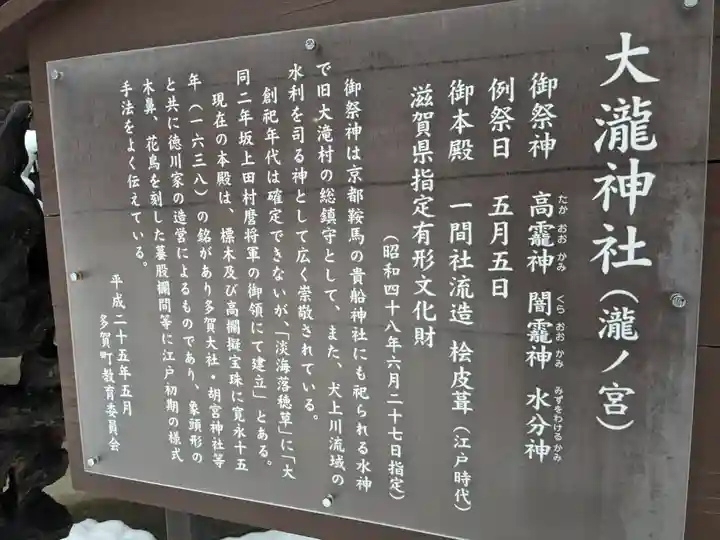 大瀧神社（瀧ノ宮）
御祭神　高龗神　闇龗神　水分神
たか おお かみ　くら おお かみ　みずをわけるかみ
例祭日　五月五日
御本殿　一間社流造　桧皮葺（江戸時代）
滋賀県指定有形文化財
（昭和四十八年六月二十七日指定）
御祭神は京都鞍馬の貴船神社にも祀られる水神
で旧大滝村の総鎮守として、また、犬上川流域の
水利を司る神として広く崇敬されている。
創祀年代は確定できないが、「淡海落穂草」に「大
同二年坂上田村麿将軍の御領にて建立」とある。
現在の本殿は、棟木及び高欄擬宝珠に寛永十五
年（一六三八）の銘があり多賀大社・胡宮神社等
と共に徳川家の造営によるものであり、象頭形の
木鼻、花鳥を刻した蟇股欄間等に江戸初期の様式
手法をよく伝えている。
平成二十五年五月
多賀町教育委員会